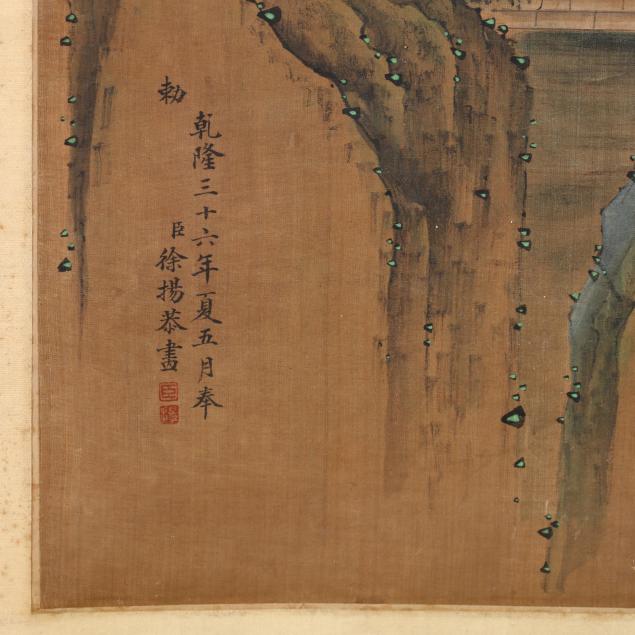 乾隆三十六年夏五月奉
勅
臣徐揚恭畫
臣
揚